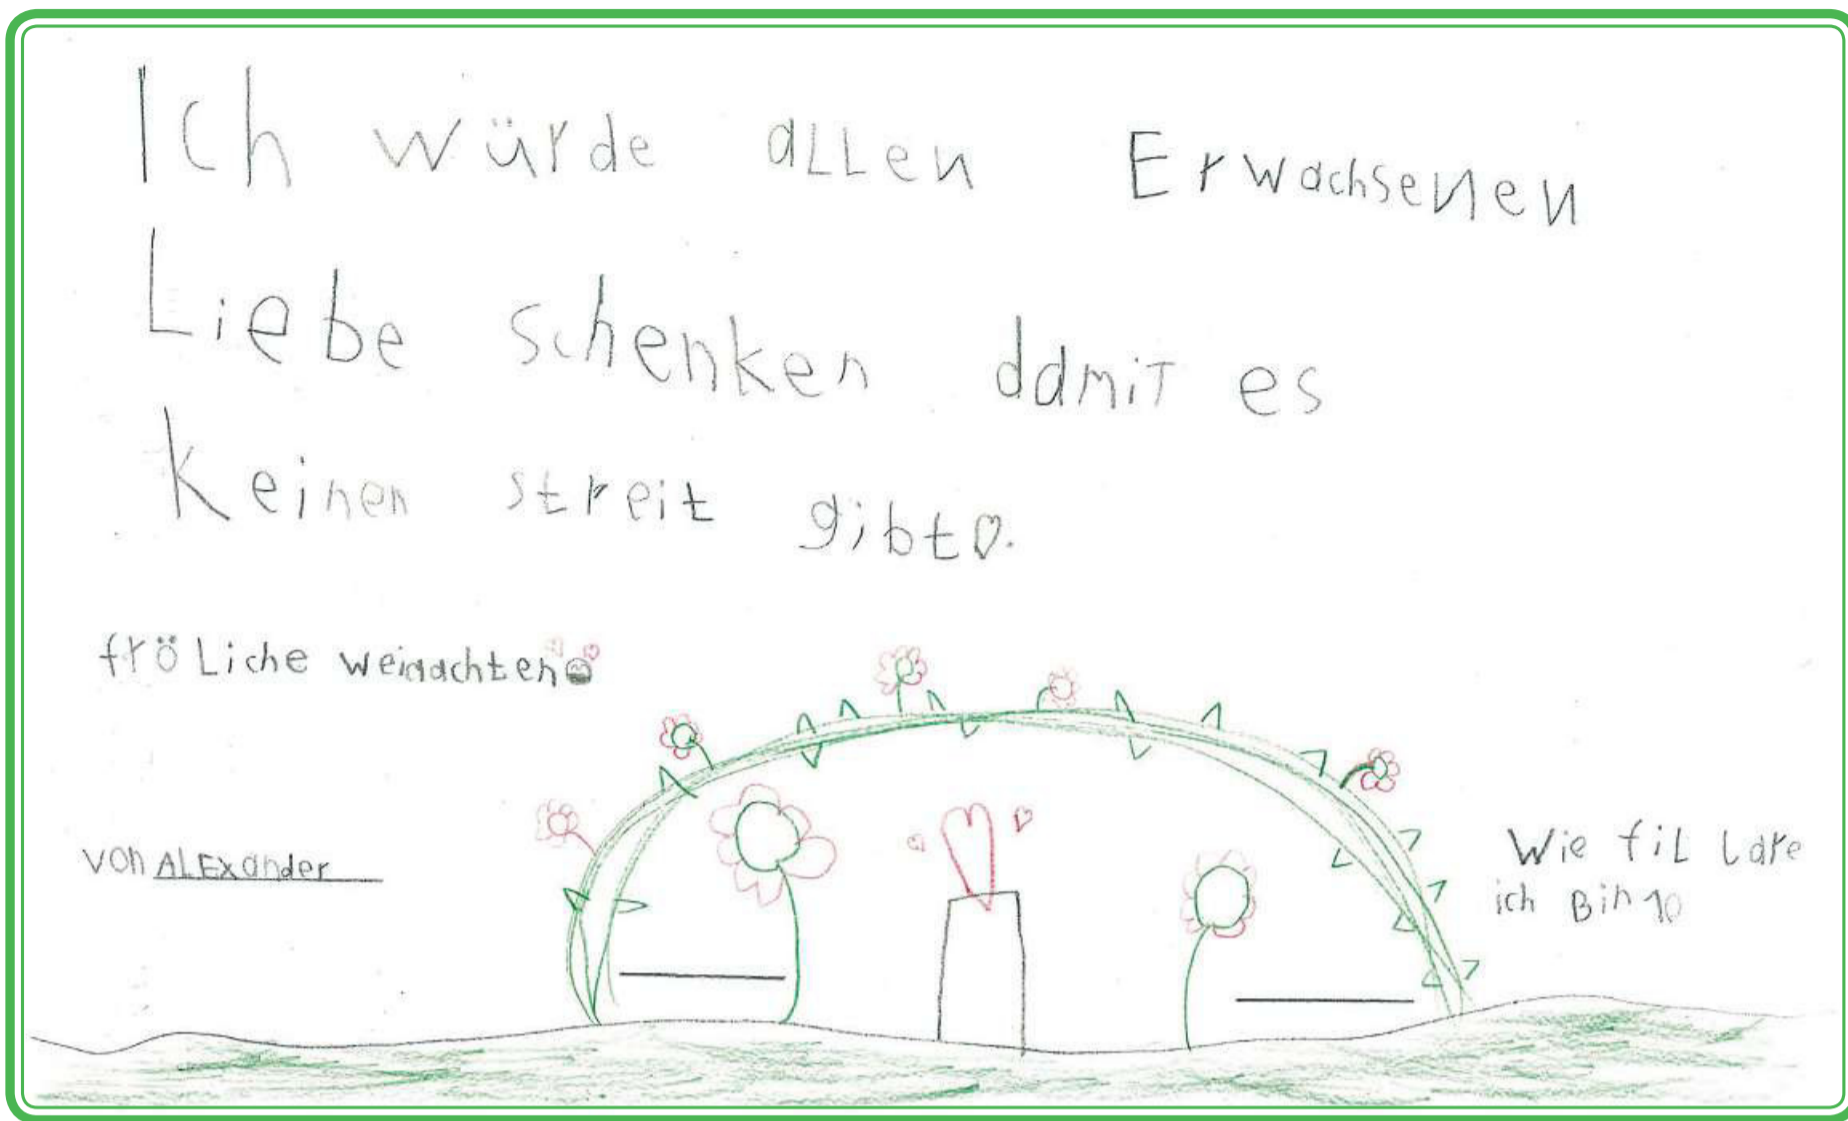 Ich würde allen Erwachsenen
Liebe schenken damit es
keinen streit gibt♡.
fröliche weinachten
von ALExander
Wie fil Lare
ich Bin 10